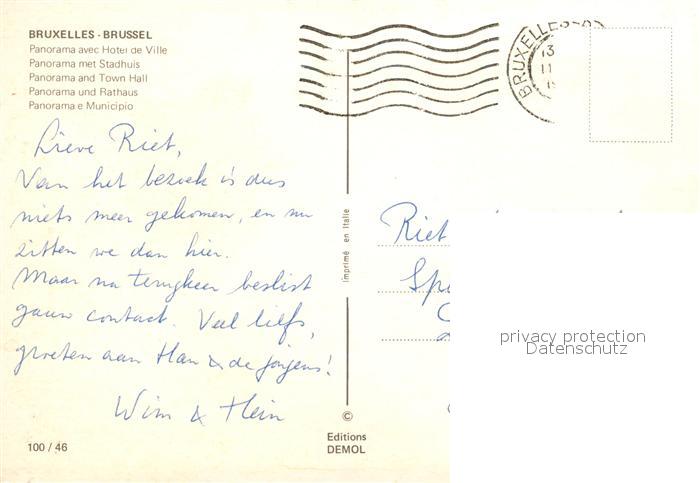 BRUXELLES - BRUSSEL
Panorama avec Hotel de Ville
Panorama met Stadhuis
Panorama and Town Hall
Panorama und Rathaus
Panorama e Municipio
BRUXELLES
13
11
Lieve Riet,
Van het bezoek is dus
niets meer gekomen, en nu
zitten we dan hier.
Maar na terugkeer beslist
gauw contact. Veel liefs,
groeten aan Han & de jongens!
Wim & Hein
imprimé en Italie
Riet
Spe
privacy protection
Datenschutz
©
Editions
DEMOL
100 / 46